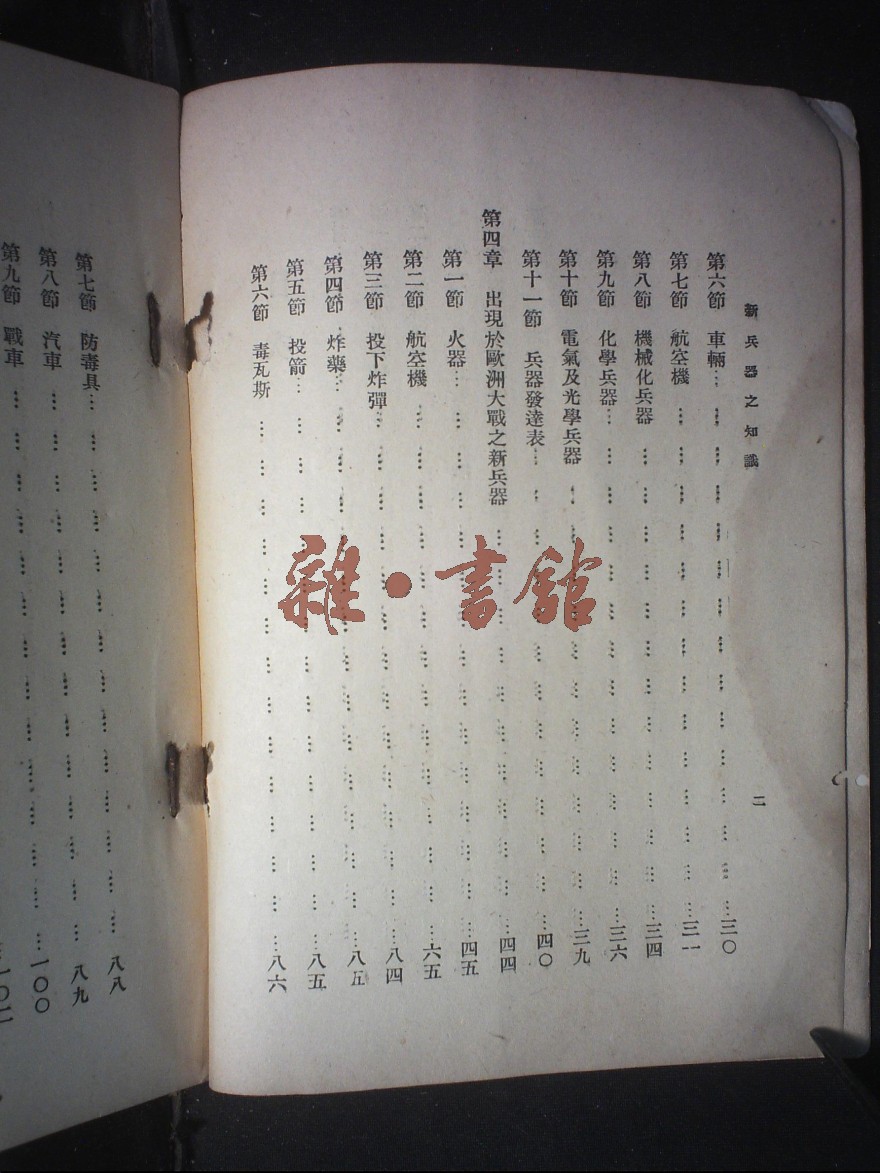 新兵器之知識 二
第六節 車輛……三〇
第七節 航空機……三一
第八節 機械化兵器……三四
第九節 化學兵器……三六
第十節 電氣及光學兵器……三九
第十一節 兵器發達表……四〇
第四章 出現於歐洲大戰之新兵器……四四
第一節 火器……四五
第二節 航空機……六五
第三節 投下炸彈……八四
第四節 炸藥……八五
第五節 投箭……八五
第六節 毒瓦斯……八六
第七節 防毒具……八八
第八節 汽車……八九
第九節 戰車……一〇〇
一〇二
雜·書館